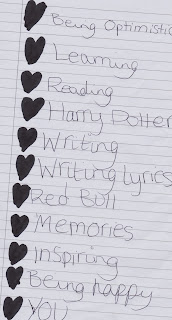 Being Optimistic
Learning
Reading
Harry Potter
Writing
Writing lyrics
Red Bull
Memories
Inspiring
Being happy
YOU